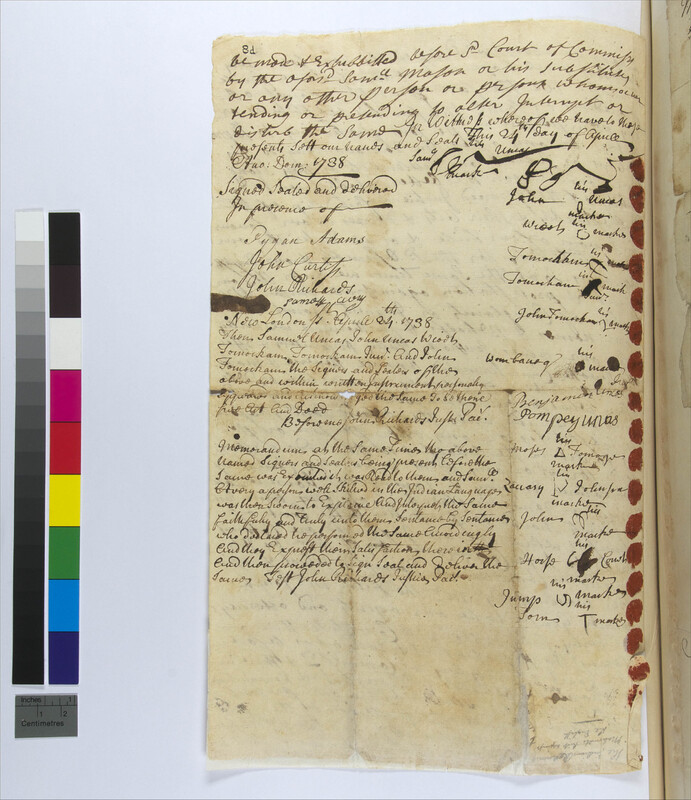 8d
be made & Exhibbitted before sd Court of Commissrs
by the aforsd Samll Mason or his Substitutes
or any other person or persons whomsoever
tending or pretending to alter Interrupt or
disturb the Same In Witness whereof we have to these
presents sett our hands and Seals this 24th day of Aprill
Ano: Dom: 1738
Samll his Uncas
mark
Signed Sealed and delivered
In presence of
John his Uncas
marke
Weebt his marke
Pygan Adams
John Curtiss
John Richards
James
Tomockham his mark
Tomockham his mark
Junr
John Tomockham his marke
New London ss. Aprill 24th 1738
Then Samuel Uncas John Uncas Weebt
Tomockham Tomockham Junr. And John
Tomockham the Signers and Sealers of the
above and within written Instrument personally
appeared and acknowledged the Same To be there
free Act And Deed
Before me John Richards Justs Pac.
his
marke
Benjamin Uncas
Pompey Uncas
Memorandum at the Same Time the above
named Signers and Sealers being present before the
Same was Executed it was Read to them and Samll
Avery a person well Skilled in the Indian Languages
was then Sworn to Explaine And Interpret the Same
faithfully and truly unto them Sentance by Sentance
who declared he performed the Same Accordingly
And they Exprest their Satisfaction therein
And then proceeded to Sign Seal and Deliver the
Same Test John Richards Justice Pac.
his
Moses
marke
his
Zacary Johnson
marke
John his
marke
his
Horse
his marke
Jump marke
his
Tom marke
Inches
1
2
Centimetres